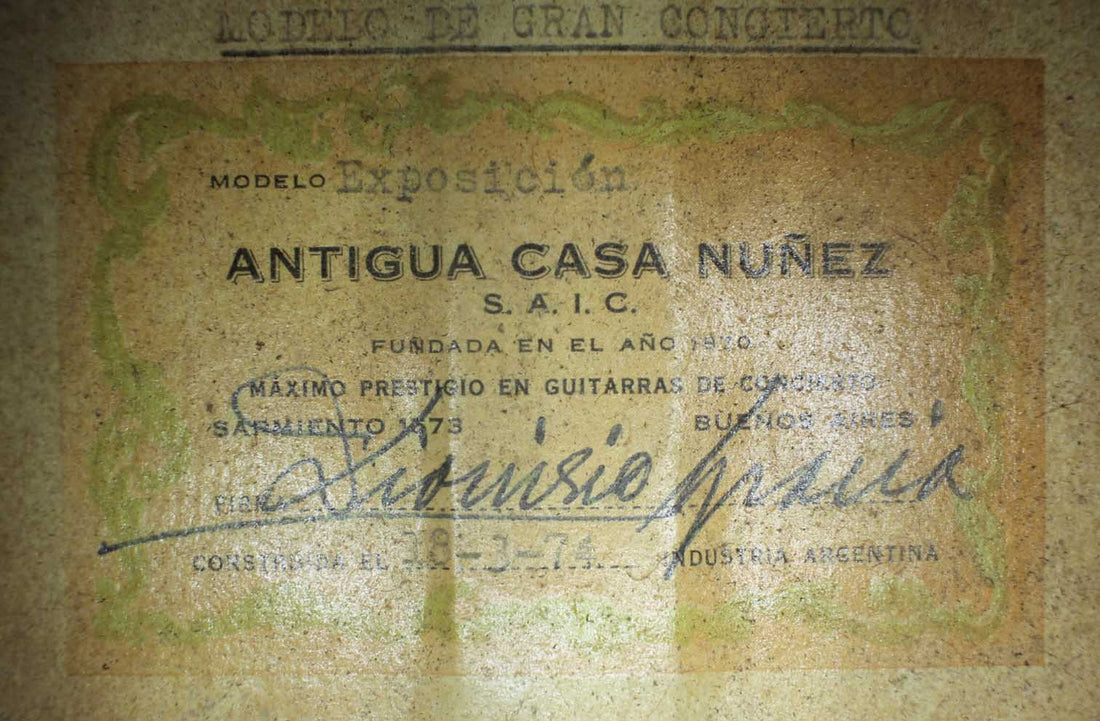 MODELO DE GRAN CONCIERTO
MODELO Exposición
ANTIGUA CASA NUÑEZ
S. A. I. C.
FUNDADA EN EL AÑO 1870
MÁXIMO PRESTIGIO EN GUITARRAS DE CONCIERTO
SARMIENTO 1573 BUENOS AIRES
FIRMA Dionisio Gracia
CONSTRUIDA EL 18-3-74 INDUSTRIA ARGENTINA